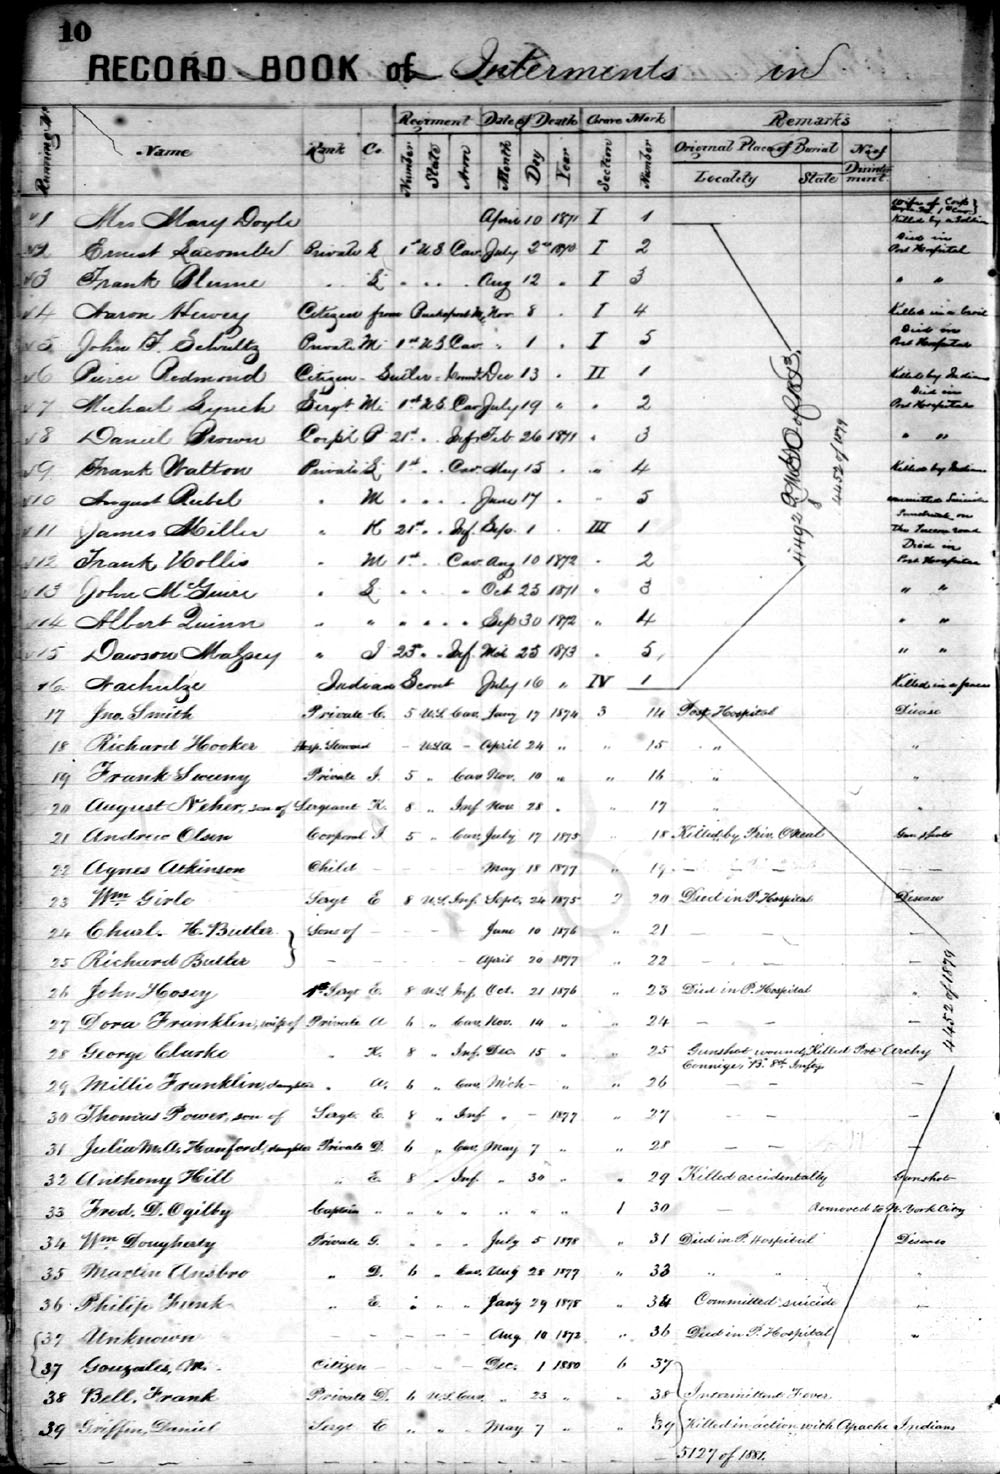 10
RECORD BOOK of Interments in
Running No Name Rank Co. Regiment Date of Death Grave Mark Remarks
Number State Arm Month Day Year Section Number Original Place of Burial No of
Locality State Disinterment.
1 Mrs Mary Doyle April 10 1871 I 1 Wife of Corp 1st Cav. Killed by a
2 Ernest Lacombe Private L 1st U S Cav. July 2nd 1870 I 2 Died in Post Hospital
3 Frank Blume " L " " " Aug 12 " I 3 " "
4 Aaron Hewey Citizen from Bucksport Me, Nov. 8 " I 4 Killed in a
5 John F. Schultz Private M 1st U S Cav. " 1 " I 5 Died in Post Hospital
6 Pierce Redmond Citizen - Sutler - Dec 13 " II 1 Killed by Indians
7 Michael Lynch Sergt M 1st U S Cav July 19 " " 2 Died in Post Hospital
8 Daniel Brown Corp'l P 21st " Inf. Feb. 26 1871 " 3 " "
9 Frank Walton Private L 1st " Cav. May 15 " " 4 Killed by Indians
10 August Riebel " M " " " June 17 " " 5 Committed Suicide
11 James Miller " K 21st " Inf. Sep. 1 " III 1 on the Tucson road
12 Frank Hollis " M 1st " Cav. Aug 10 1872 " 2 Died in Post Hospital
13 John McGuire " L " " " Oct 25 1871 " 3 " "
14 Albert Quinn " " " " " Sep 30 1872 " 4 " "
15 Dawson Malpsey " I 23rd " Inf. Mch 25 1873 " 5 " "
16 Nachulze Indian Scout July 16 " IV 1 Killed in a
4492 Q.M.G.O. of 1873.
4452 of 1879
17 Jno. Smith Private C. 5 U.S. Cav. Jany 17 1874 3 14 Post Hospital Disease
18 Richard Hooker Hosp. Steward - U.S.A. - April 24 " " 15 " " "
19 Frank Sweeny Private I. 5 " Cav. Nov. 10 " " 16 " "
20 August Neher, son of Sergeant K. 8 " Inf Nov. 28 " 17 " "
21 Andrew Olsen Corporal I 5 " Cav. July 17 1875 " 18 Killed by Priv. O'Neal Gun shot
22 Agnes Atkinson Child - - - - May 18 1877 " 19 - - -
23 Wm Girlo Sergt E 8 U.S. Inf. Sept. 24 1875 2 20 Died in P. Hospital Disease
24 Charl. H. Butler } Sons of - - - - June 10 1876 " 21 - - -
25 Richard Butler - - - - - April 20 1877 " 22 - - -
26 John Hosey 1st Sergt E. 8 U.S. Inf. Oct. 21 1876 " 23 Died in P. Hospital "
27 Dora Franklin, wife of Private A 6 " Cav. Nov. 14 " " 24 - - -
28 George Clarke " K. 8 " Inf Dec. 15 " " 25 Gunshot wound, Killed Pvt Archy
Conniges, "B" 8th Infty
29 Millie Franklin, daughter " A. 6 " Cav. Mch - " " 26 - -
4452 of 1879
30 Thomas Power, son of Sergt E. 8 " Inf. " - 1877 " 27 - - -
31 Julia M. A. Hanford, daughter Private D. 6 " Cav. May 7 " " 28 - -
32 Anthony Hill " E. 8 " Inf. " 30 " " 29 Killed accidentally Gunshot
33 Fred. D. Ogilby Captain " " " " " " " 1 30 - Removed to N. York City
34 Wm Dougherty Private G. " " " July 5 1878 " 31 Died in P. Hospital Disease
35 Martin Ansbro " D. 6 " Cav. Aug 28 1877 " 33 " " "
36 Philip Funk " E. " " " Jan'y 29 1878 " 34 Committed suicide -
37 Unknown - - - - - Aug 10 1872 " 36 Died in P. Hospital "
37 Gonzales, M. Citizen - - - - Dec. 1 1880 6 37
38 Bell, Frank Private D. 6 U.S. Cav. " 23 " " 38 Intermittent Fever.
39 Griffin, Daniel Sergt E " " " May 7 " " 39 Killed in action with Apache Indians
5127 of 1881.